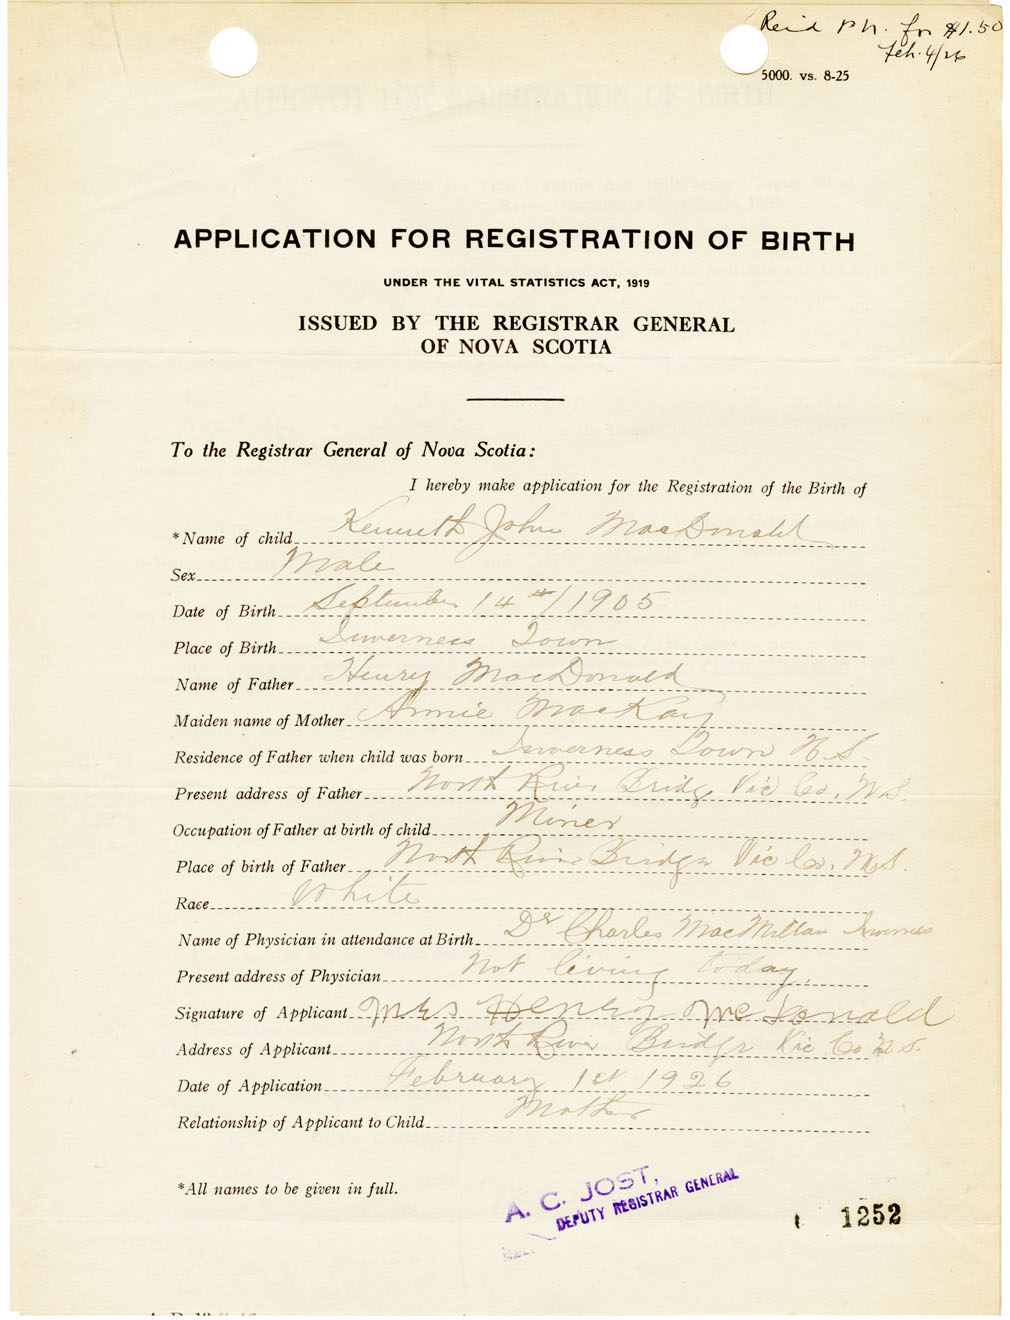 Rec'd P.N. for $1.50
Feb. 4/26
5000. vs. 8-25
APPLICATION FOR REGISTRATION OF BIRTH
UNDER THE VITAL STATISTICS ACT, 1919
ISSUED BY THE REGISTRAR GENERAL
OF NOVA SCOTIA
To the Registrar General of Nova Scotia:
I hereby make application for the Registration of the Birth of
*Name of child Kenneth John MacDonald
Sex Male
Date of Birth September 14th/1905
Place of Birth Inverness Town
Name of Father Henry MacDonald
Maiden name of Mother Annie MacKay
Residence of Father when child was born Inverness Town N.S.
Present address of Father North River Bridge Vic Co. N.S.
Occupation of Father at birth of child Miner
Place of birth of Father North River Bridge Vic Co. N.S.
Race White
Name of Physician in attendance at Birth Dr Charles MacMillan Inverness
Present address of Physician Not living today.
Signature of Applicant Mrs Henry McDonald
Address of Applicant North River Bridge Vic Co N.S.
Date of Application February 1st 1926
Relationship of Applicant to Child Mother
*All names to be given in full.
A. C. JOST,
DEPUTY REGISTRAR GENERAL
1252